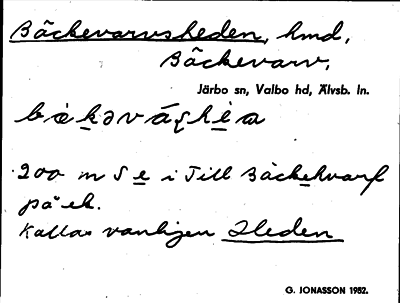 Bäckevarvsheden, hmd,
Bäckevarv,
Järbo sn, Valbo hd, Älvsb. ln.
200 m S e i Till Bäckehvarf
på ek.
Kallas vanligen Heden
G. JONASSON 1952.